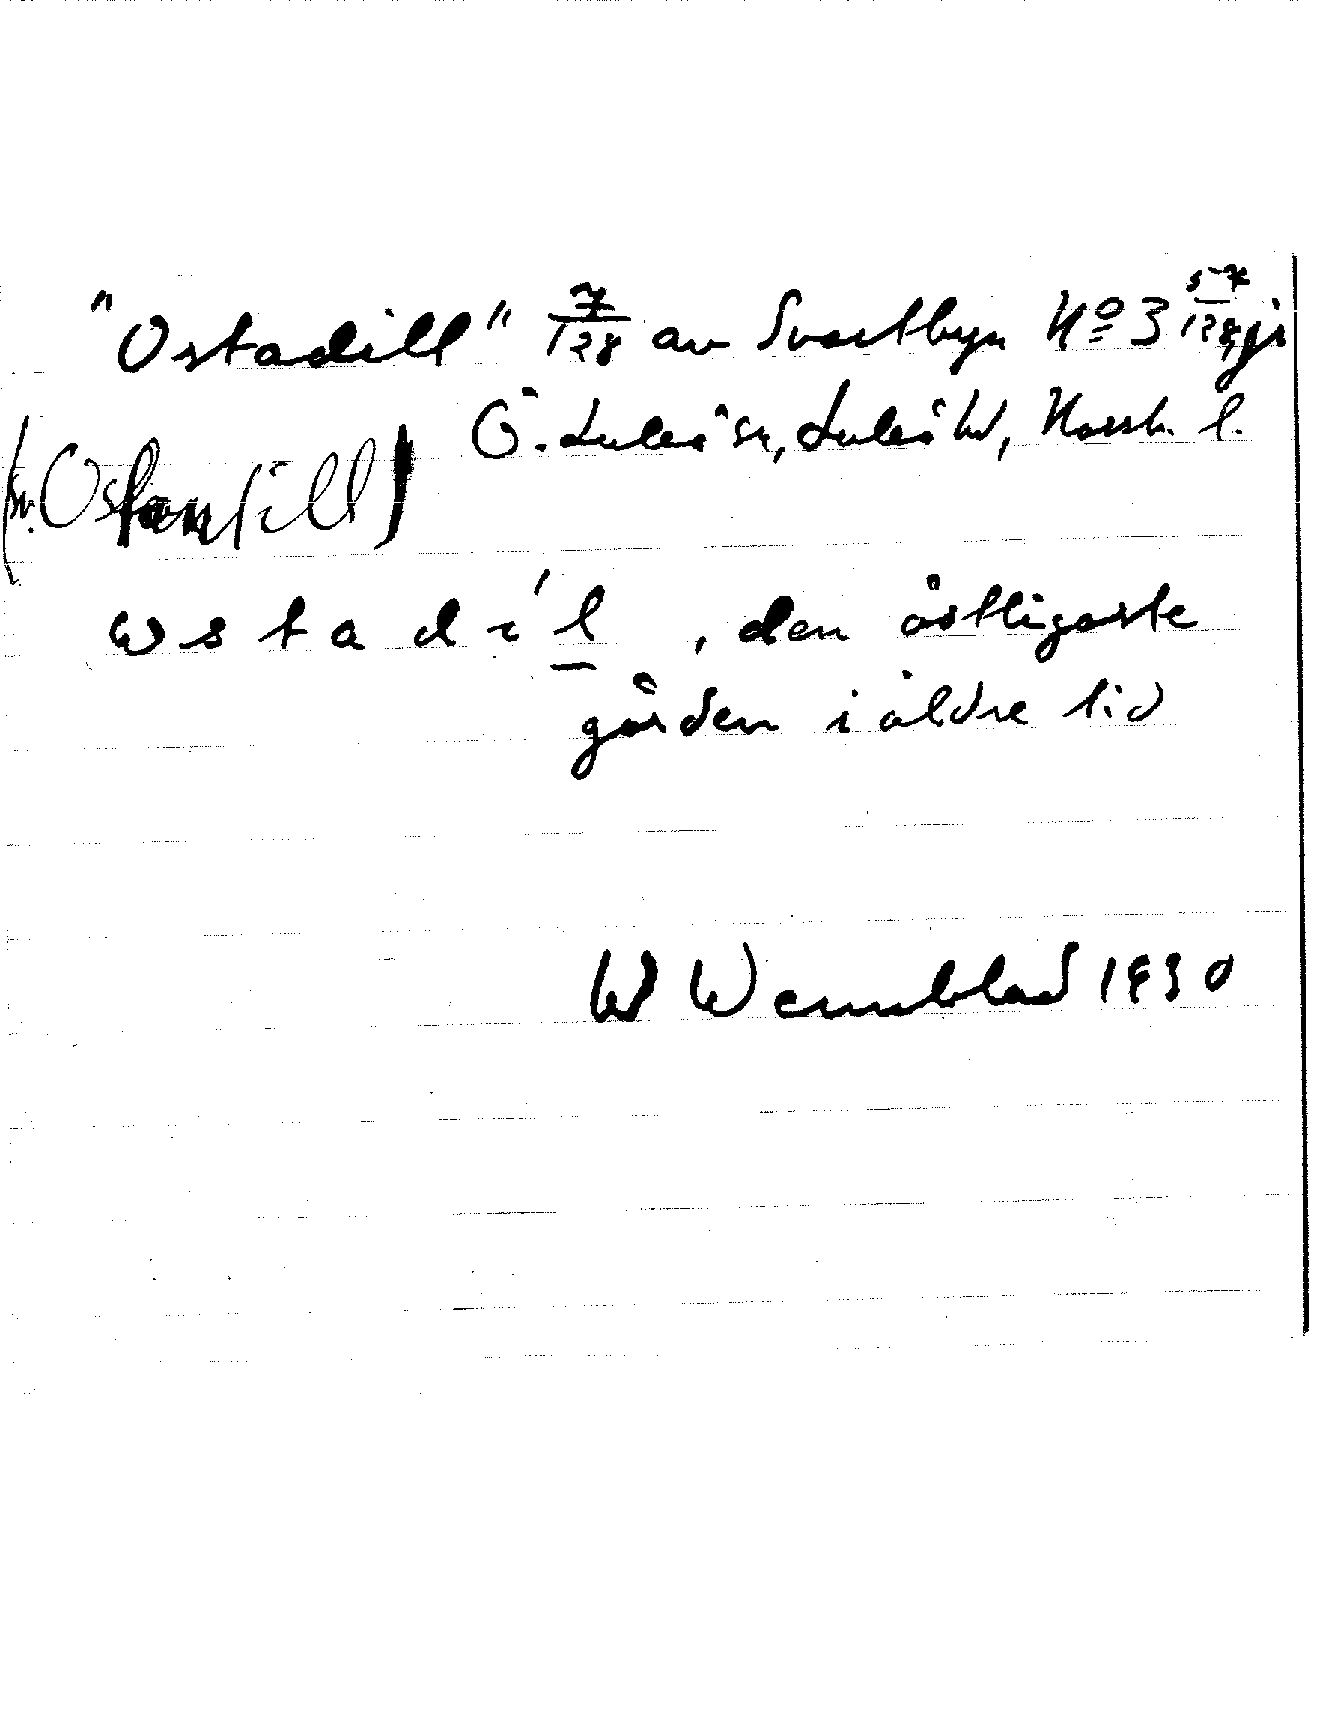 "Ostadill" 7/128 av Svartbyn No 3 57/128, gd
Ö. Luleå sn, Luleå hd, Norrb. l.
(sv. Ostantill)
ω s t a d i ́ l , den östligaste
gården i äldre tid
W Wennblad 1930